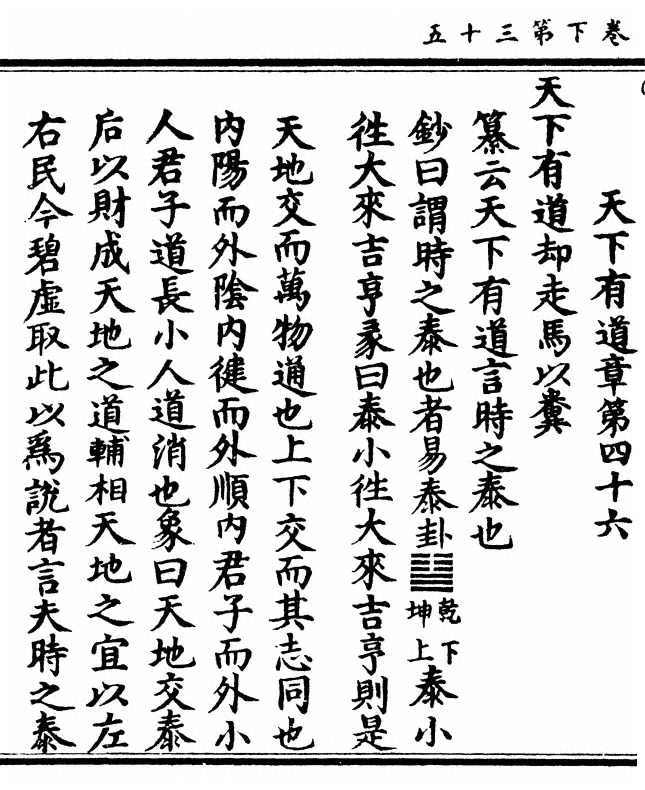 卷下第三十五
天下有道章第四十六
天下有道却走馬以糞
纂云天下有道言時之泰也
鈔曰謂時之泰也者易泰卦䷊乾下坤上泰小
徃大來吉亨彖曰泰小徃大來吉亨則是
天地交而萬物通也上下交而其志同也
内陽而外隂内健而外順内君子而外小
人君子道長小人道消也象曰天地交泰
后以財成天地之道輔相天地之宜以左
右民今碧虚取此以爲說者言夫時之泰